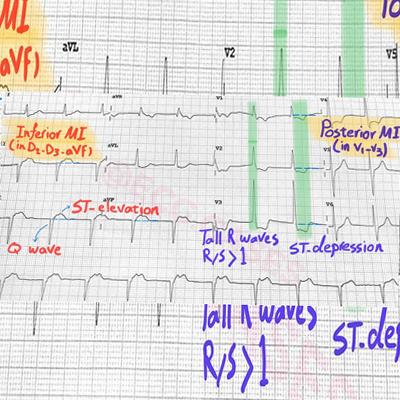 MI
aVf)
aVL
V2
V5
aVR
V1
V4
Inferior MI
(in D2-D3-aVf)
aVL
V2
Posterior MI
(in V1-V3)
ST-elevation
Q wave
aVF
V3
V6
Tall R waves
R/S>1
ST-depression
Tall R waves
R/S>1
ST-dep